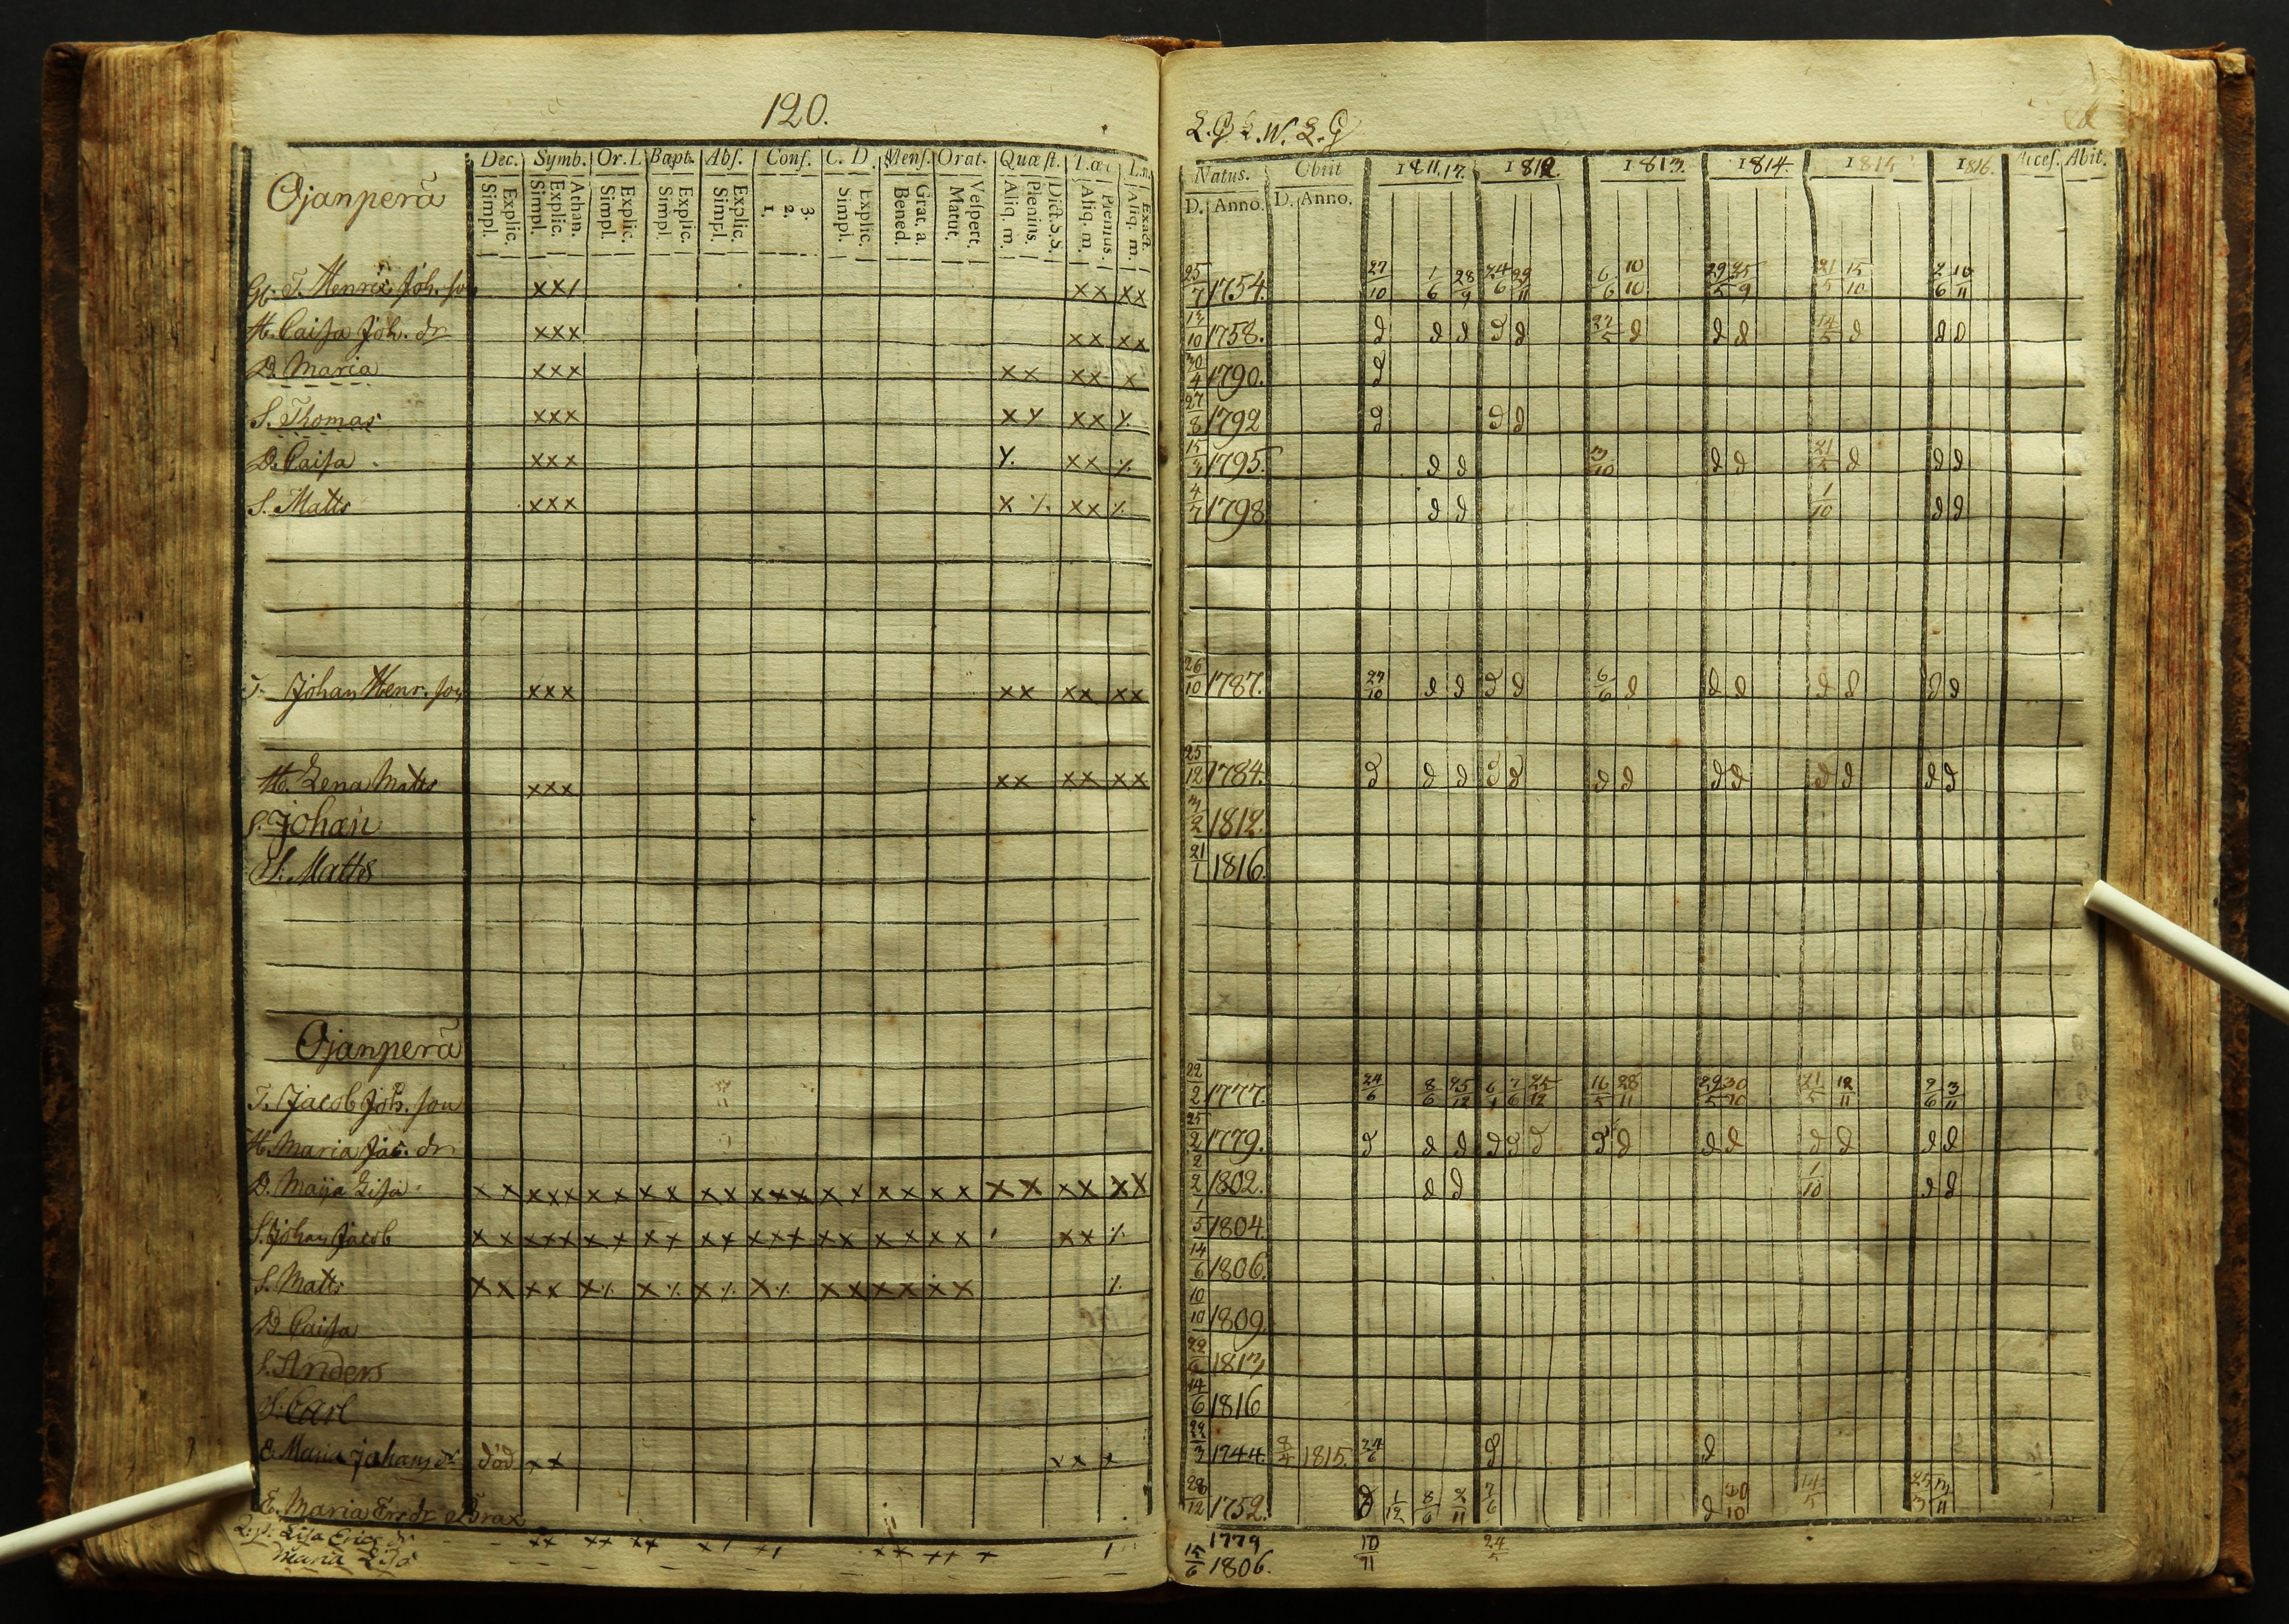 120.
L. G L. W. L. G
Ojanperä
Dec. Symb. Or. D. Bapt. Abs. Conf. C. D. Mens. Orat. Quæst.
Explic. Simpl. Athan. Explic. Simpl. Explic. Simpl. Explic. Simpl. Explic. Simpl. 3. 2. 1. Explic. Simpl. Grat. a. Bened. Vespert. Matut. Dict. S.S. Plenius. Aliq. m. Plenius. Aliq. m. Exact. Aliq. m.
Natus. Obiit 1811, 17. 1812. 1813. 1814. 1815 1816. Acces. Abit.
D. Anno. D. Anno.
T. Henric Joh. son xx/ xx xx 25/7 1754. 27/10 1/6 28/9 24/6 29/11 6/6 10/10 29/5 25/9 21/5 15/10 2/6 10/11
H. Caisa Joh. dr xxx xx xx 13/10 1758. d d d d d 27/5 d d d 14/5 d d d
D. Maria xxx xx xx x 30/4 1790. d
S. Thomas xxx x y xx y. 27/8 1792 d d d
D. Caisa xxx y. xx ⁒ 15/3 1795. d d 3/10 d d 21/5 d d d
S. Matts xxx x ⁒ xx ⁒ 4/7 1798 d d 1/10 d d
Johan Henr. son xxx xx xx xx 26/10 1787. 27/10 d d d d 6/6 d d d d d d d
H. Lena Matts xxx xx xx xx 25/12 1784. d d d d d d d d d d d d d
S. Johan 3/2 1812.
S. Matts 21/1 1816.
Ojanperä
T. Jacob Joh. son 22/2 1777. 24/6 8/6 25/12 6/1 7/6 25/12 16/5 28/11 29/5 30/10 21/5 12/11 2/6 3/11
H. Maria Jac. dr 25/2 1779. d d d d d d d d d d d d d d
D. Maija Lisa x x xxx x x x x x x xxx x x x x x x x x xx xx 2/2 1802. d d 1/10 d d
S. Johan Jacob x x xxx x x x x x x xxx xx x x x x xx ⁒ 1/5 1804.
S. Matts x x x x x ⁒ x ⁒ x ⁒ x ⁒ x x x x x x ⁒ 14/6 1806.
D. Caisa 10/10 1809.
S. Anders 1813
S. Carl 14/6 1816
E. Maria Johans dr död x x x x x 1744. 1815. 24/6 d d
E. Maria Er. dr Brax 28/12 1752. d 1/12 8/6 2/11 7/6 d 30/10 14/5
Lisa Erics dr 1779 10/11 24/5
Maria Lisa 15/6 1806.